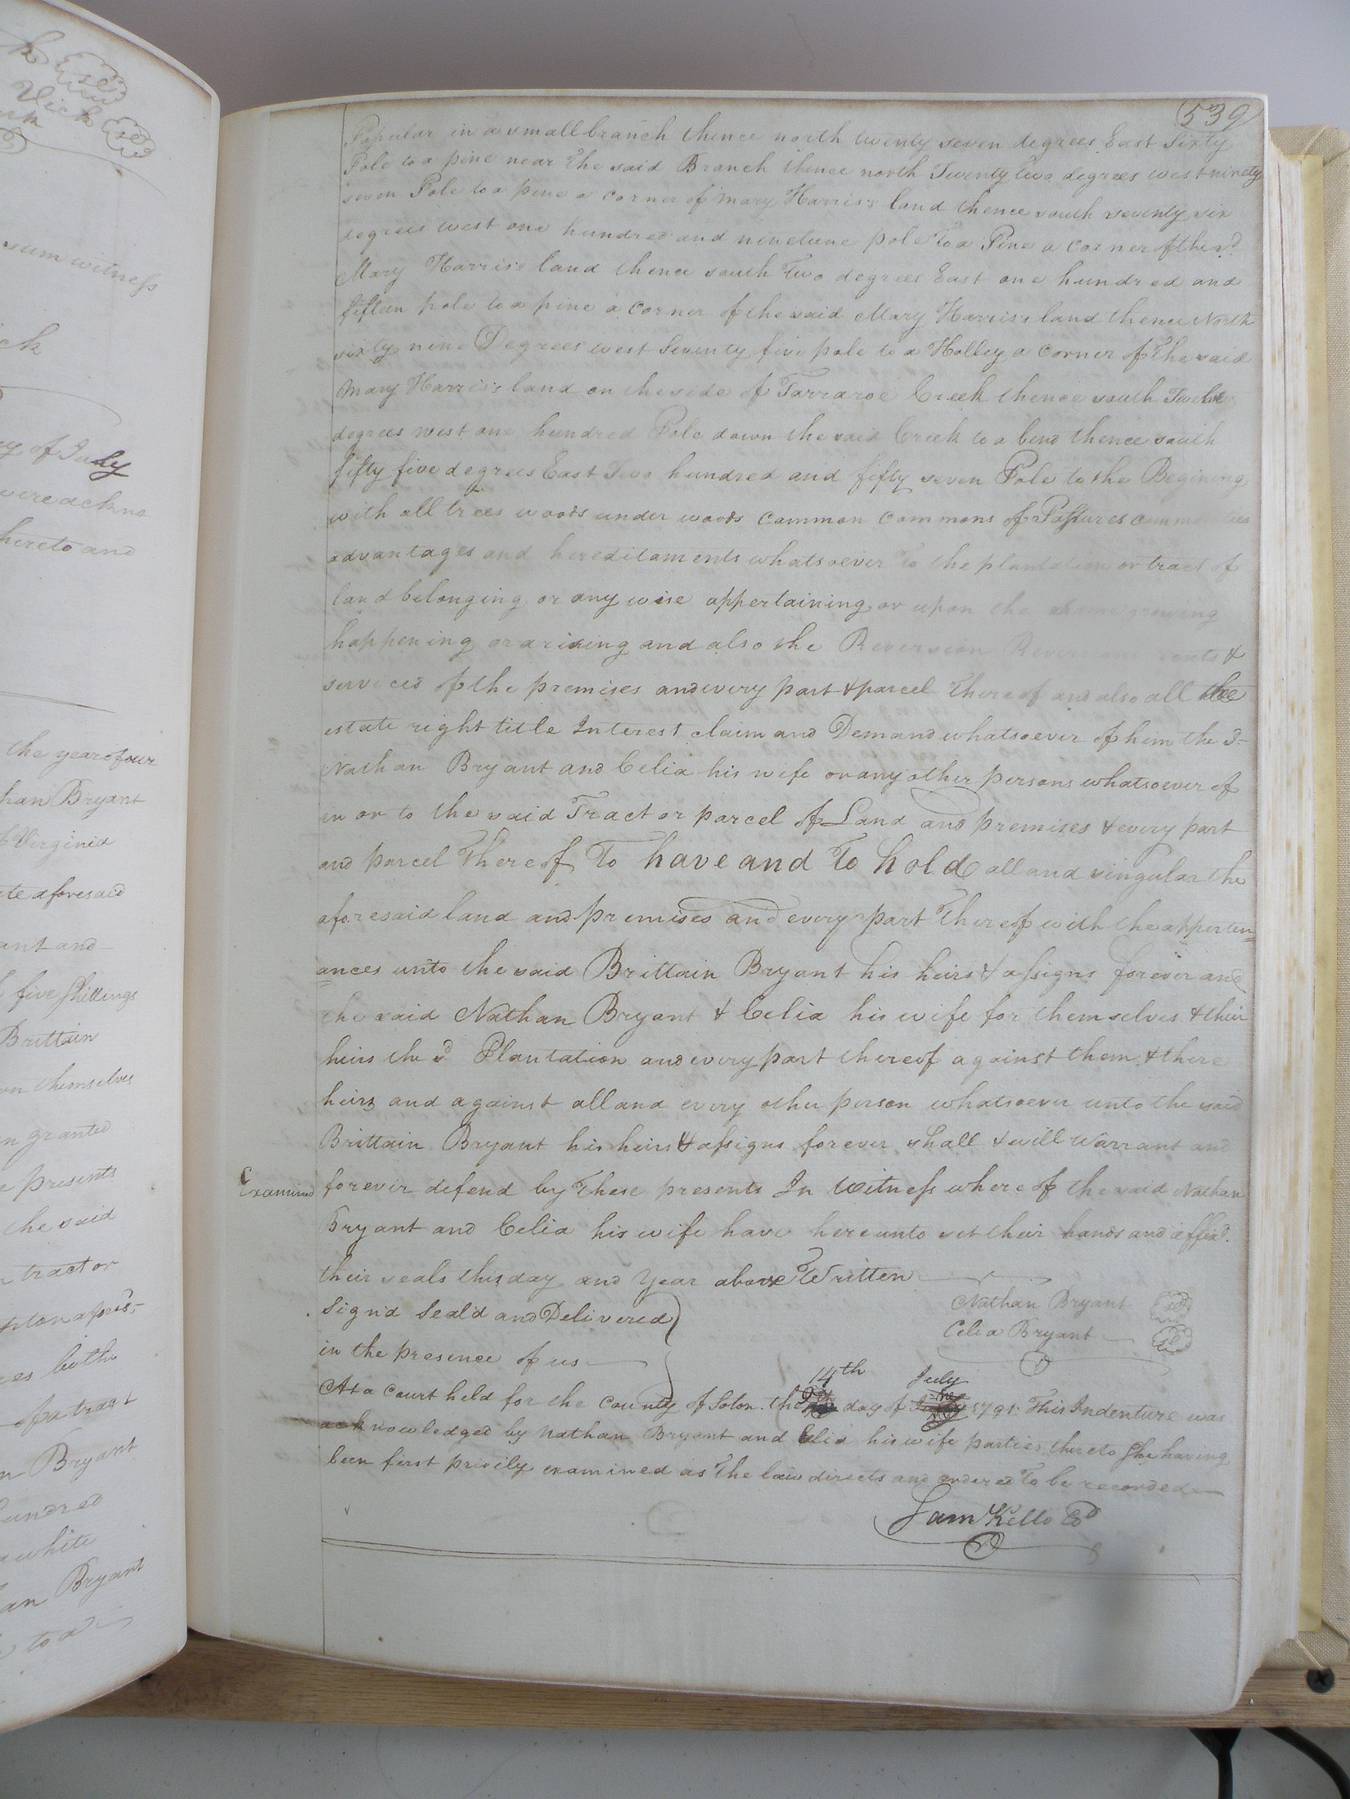 k
Vick
sum witness
ck
y of July
were ackno
hereto and
the year of our
han Bryant
Virginia
te aforesaid
ant and
five shillings
Brittain
on themselves
n granted
presents
the said
tract or
es both
of a tract
n Bryant
hundred
white
an Bryant
to a
539
Popular in a small branch thence north twenty seven degrees East Sixty
Pole to a pine near the said Branch thence north Twenty two degrees west ninety
seven Pole to a pine a corner of Mary Harris's land thence south seventy six
degrees west one hundred and nineteene pole to a Pine a corner of the sd
Mary Harris's land thence south Two degrees East one hundred and
fifteen pole to a pine a corner of the said Mary Harris's land thence North
sixty nine Degrees west Seventy five pole to a Holley a corner of the said
Mary Harris's land on the side of Tarraroe Creek thence south Twelve
degrees west one hundred Pole down the said Creek to a bend thence south
fifty five degrees East Two hundred and fifty seven Pole to the Begining
with all trees woods under woods common commons of Passures
advantages and hereditaments whatsoever to the plantation or tract of
land belonging or any wise appertaining or upon the same growing
happening or arising and also the Reversion Reversions rents &
services of the premises and every part & parcel thereof and also all the
estate right title Interest claim and Demand whatsoever of him the sd
Nathan Bryant and Celia his wife or any other persons whatsoever of
in or to the said Tract or parcel of Land and premises & every part
and parcel thereof To have and To hold all and singular the
aforesaid land and premises and every part thereof with the apperten=
=ances unto the said Brittain Bryant his heirs & assigns forever and
the said Nathan Bryant & Celia his wife for themselves & their
heirs the sd Plantation and every part thereof against them & there
heirs and against all and every other person whatsoever unto the said
Brittain Bryant his heirs & assigns forever shall & will warrant and
Examined
forever defend by these presents In Witness whereof the said Nathan
Bryant and Celia his wife have hereunto set their hands and affixd.
their seals this day and year above Written
Sign'd Seal'd and Delivered
in the presence of us
Nathan Bryant
Celia Bryant
14th July
At a Court held for the County of Soton. the day of 1791. This Indenture was
acknowledged by Nathan Bryant and Celia his wife parties thereto She having
been first privily examined as the law directs and ordered To be recorded
Sam Kello